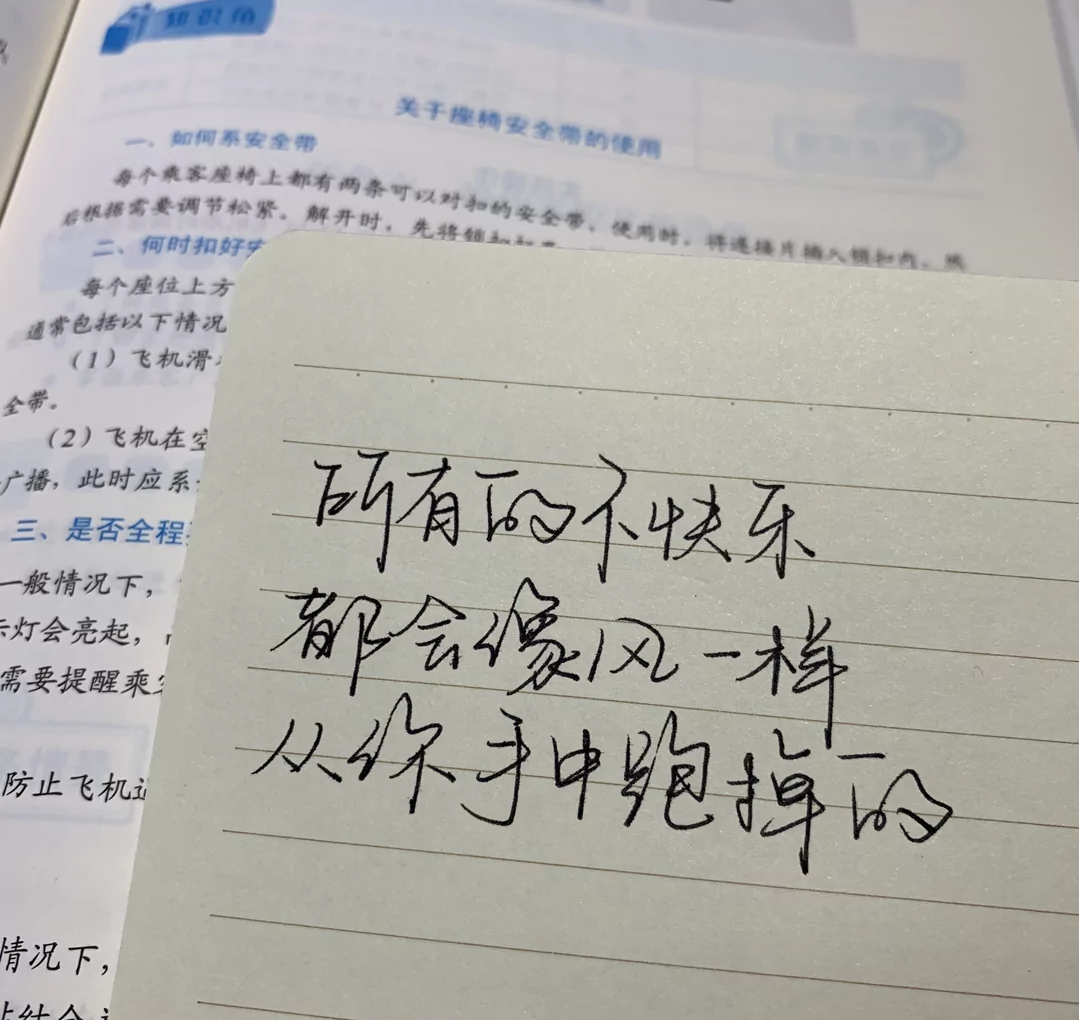 知识角
关于座椅安全带的使用
一、如何系安全带
每个乘客座椅上都有两条可以对扣的安全带，使用时，将连接片插入锁扣内，然
后根据需要调节松紧。解开时，先将锁扣
二、何时扣好安
每个座位上方
通常包括以下情况
（1）飞机滑
全带。
（2）飞机在空
广播，此时应系
三、是否全程
一般情况下，
示灯会亮起，
需要提醒乘
防止飞机
情况下，
所有的不快乐
都会像风一样
从你手中跑掉的